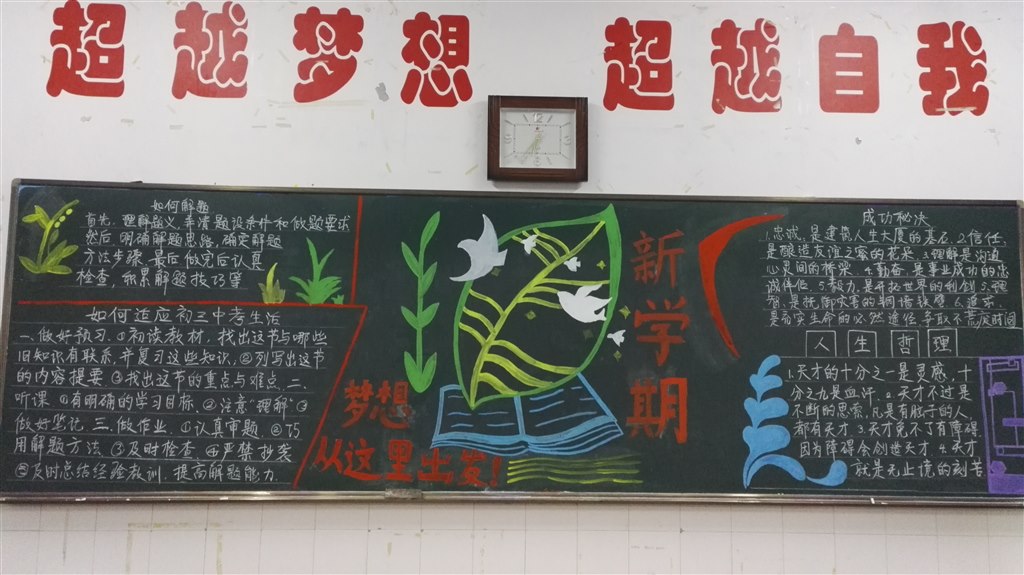 超越梦想 超越自我
如何解题
首先 理解题义,弄清题设条件和做题要求
然后 明确解题思路,确定解题
方法步骤 最后做完后认真
检查,积累解题技巧等
如何适应高三中考生活
一、做好预习 ①初读教材,找出这节与哪些
旧知识有联系,并复习这些知识,②列写出这节
的内容提要 ③找出这节的重点与难点 二、
听课 ①有明确的学习目标 ②注意"理解"③
做好笔记 三、做作业 ①认真审题 ②巧
用解题方法 ③及时检查 ④严禁抄袭
⑤及时总结经验教训,提高解题能力
梦想
从这里出发!
新学期
成功秘决
1.忠诚,是建筑人生大厦的基石 2.信任,
是酿造友谊之蜜的花米 3.理解是沟通
心灵间的桥梁 4.勤奋 是事业成功的忠
诚伴侣 5.毅力,是开拓世界的利剑 6.理
智,是抵御灾害的铜墙铁壁 追求
是充实生命的必然途径,争取不荒废时间
人生哲理
1.天才的十分之一是灵感,十
分之九是血汗 2.天才不过是
不断的思索,凡是有脑子的人
都有天才 3.天才免不了有障碍
因为障碍会创造天才 4.天才
就是无止境的刻苦